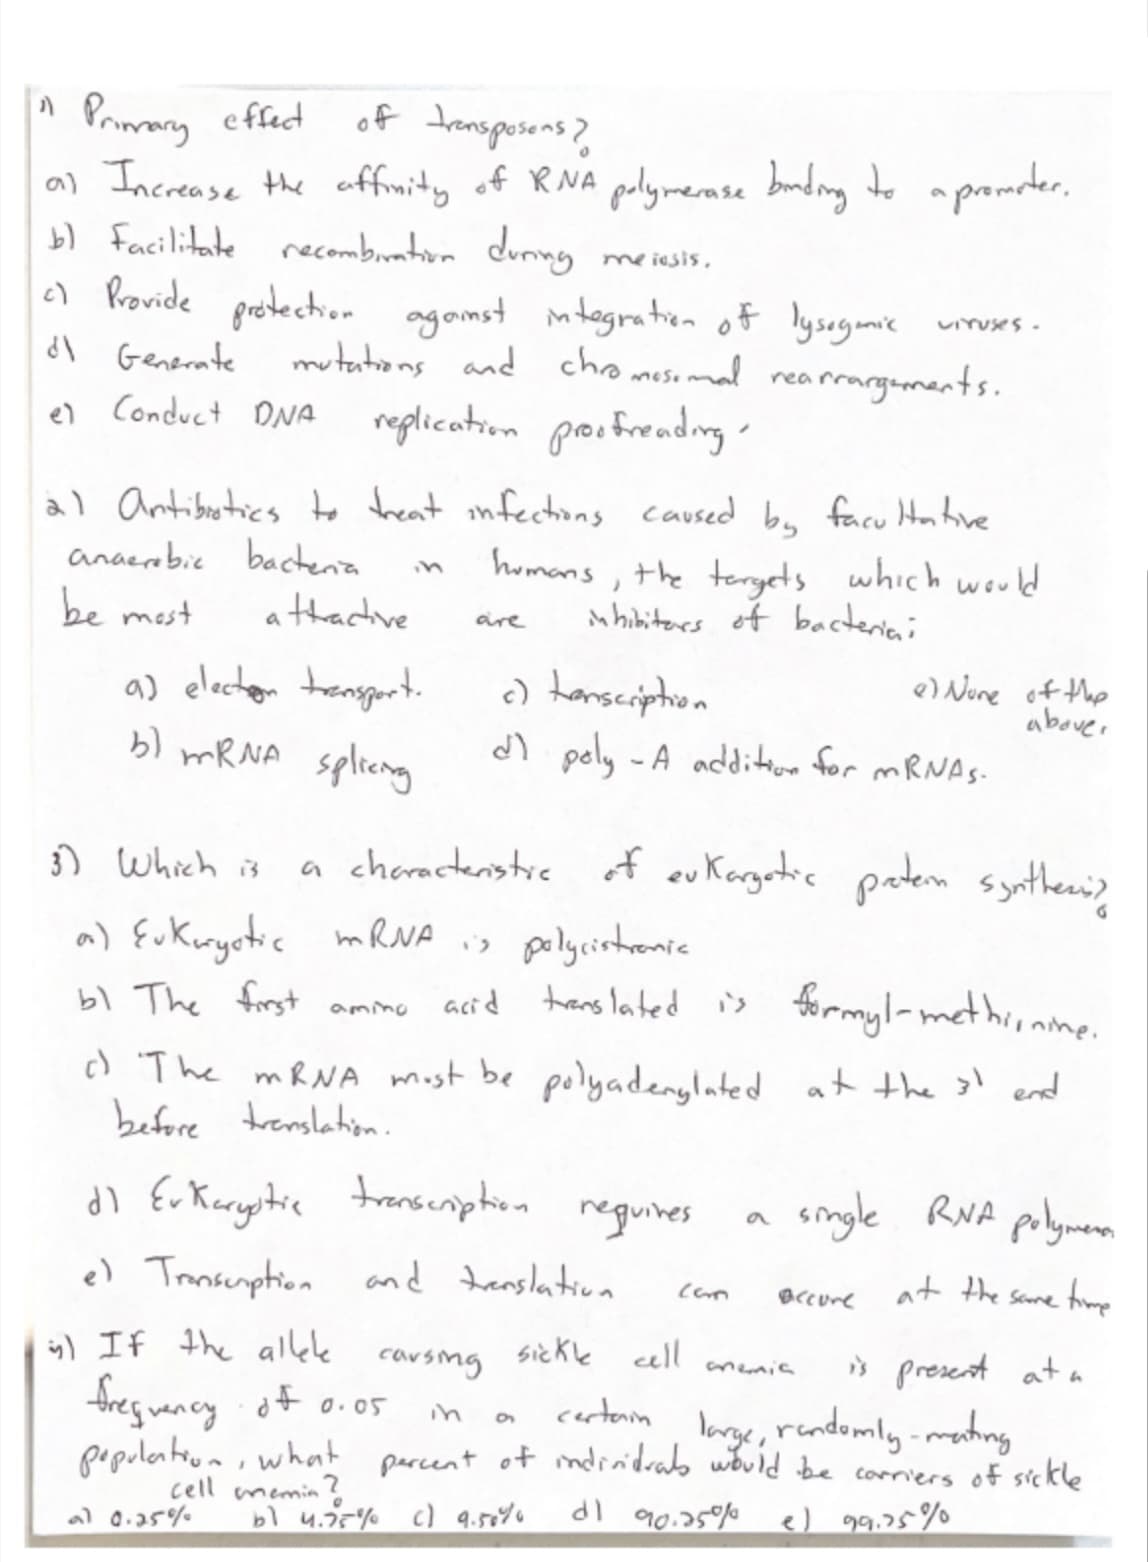 1) Primary effect of transposons?
a) Increase the affinity of RNA polymerase binding to a promoter.
b) Facilitate recombination during meiosis.
c) Provide protection against integration of lysogenic viruses.
d) Generate mutations and chromosomal rearrargements.
e) Conduct DNA replication proofreading.
2) Antibiotics to treat infections caused by facultative
anaerobic bacteria in humans, the targets which would
be most attractive are inhibitors of bacteria;
a) electron transport. c) transcription e) None of the
above.
b) mRNA splicing d) poly-A addition for mRNAs.
3) Which is a characteristic of eukaryotic protein synthesis?
a) Eukaryotic mRNA is polycistronic
b) The first amino acid translated is formyl-methionine.
c) The mRNA must be polyadenylated at the 3' end
before translation.
d) Eukaryotic transcription requires a single RNA polymera
e) Transcription and translation can occure at the same time
If the allele causing sickle cell anemia is present at a
frequency of 0.05 in a certain large, randomly-mating
population, what percent of individuals would be carriers of sickle
cell anemia?
a) 0.25% b) 4.75% c) 9.50% d) 90.25% e) 99.75%